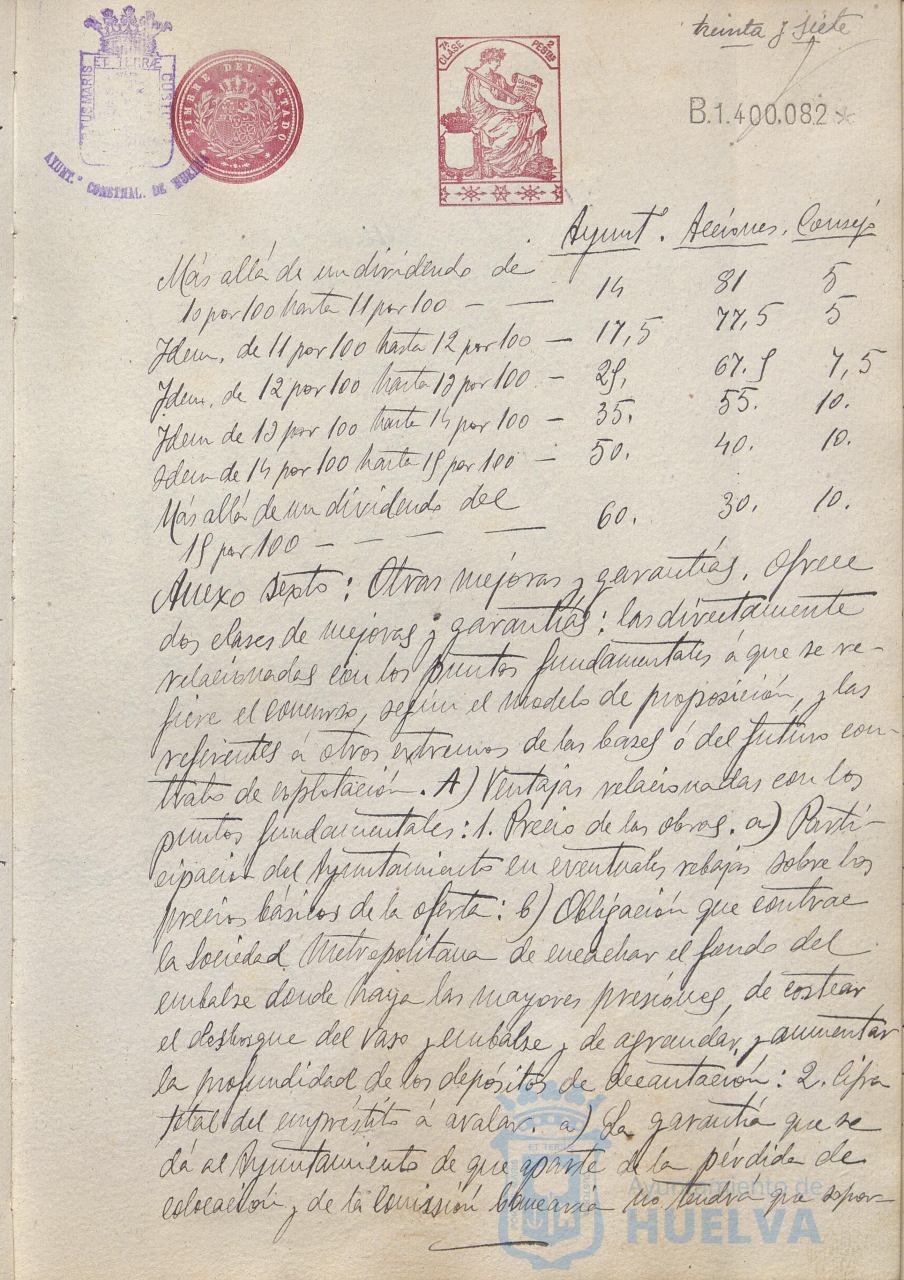 treinta y siete
PORTUS MARIS ET TERRÆ CUSTODIA
AYUNT.º CONSTNAL. DE HUELVA
TIMBRE DEL ESTADO
7ª CLASE 2 PESTAS
B.1.400.082 *
Ayuntº. Acciones. Consejo
Más allá de un dividendo de
10 por 100 hasta 11 por 100 — — 14 81 5
Idem, de 11 por 100 hasta 12 por 100 — 17,5 77,5 5
Idem, de 12 por 100 hasta 13 por 100 — 25, 67.5 7,5
Idem de 13 por 100 hasta 14 por 100 — 35. 55. 10.
Idem de 14 por 100 hasta 15 por 100 — 50. 40. 10.
Más allá de un dividendo del
15 por 100 — — — — 60. 30. 10.
Anexo sexto: Otras mejoras y garantías. Ofrece
dos clases de mejoras y garantías: las directamente
relacionadas con los puntos fundamentales á que se re-
fiere el concurso, según el modelo de proposición, y las
referentes á otros extremos de las bases ó del futuro con-
trato de explotación. A) Ventajas relacionadas con los
puntos fundamentales: 1. Precio de las obras. a) Parti-
cipación del Ayuntamiento en eventuales rebajas sobre los
precios básicos de la oferta: b) Obligación que contrae
la Sociedad Metropolitana de encachar el fondo del
embalse donde haya las mayores presiones, de costear
el desbosque del vaso y embalse y de agrandar y aumentar
la profundidad de los depósitos de decantación: 2. Cifra
total del empréstito á avalar. a) La garantía que se
dá al Ayuntamiento de que aparte de la pérdida de
colocación y de la Comisión bancaria no tendrá que sopor-
Ayuntamiento de
HUELVA